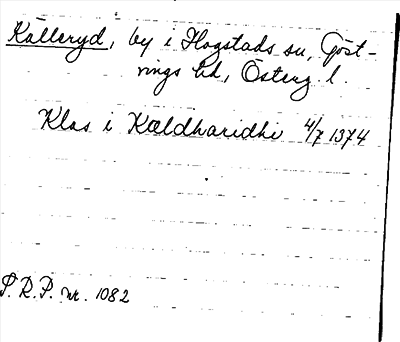 Källeryd, by i Hogstads sn, Göst-
rings hd, Österg. l.
Klas i Kældharidhi 4/7 1374
P.R.P. nr. 1082